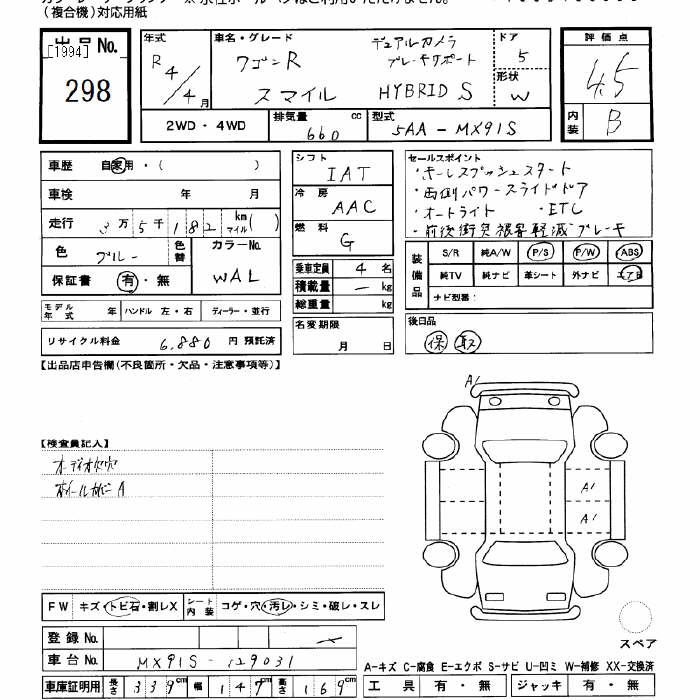 (複合機)対応用紙
出品No.
[1994]
298
年式
R4/4月
車名・グレード
ワゴンR
スマイル
デュアルカメラ
ブレーキサポート
HYBRID S
ドア
5
形状
W
評価点
4.5
内装
B
2WD・4WD
排気量
660 cc
型式
5AA-MX91S
車歴 自家用・( )
車検 年 月
走行 3万5千182 km マイル( )
色 ブルー
色替
カラーNo.
WAL
保証書 有・無
モデル年式 年 ハンドル 左・右 ディーラー・並行
リサイクル料金 6,880 円 預託済
シフト
IAT
冷房
AAC
燃料
G
乗車定員 4 名
積載量 - kg
総重量 kg
名変期限
月 日
セールスポイント
・キーレスプッシュスタート
・両側パワースライドドア
・オートライト ・ETC
・前後衝突被害軽減ブレーキ
装備品
S/R 純A/W P/S P/W ABS
純TV 純ナビ 革シート 外ナビ エアB
ナビ型番:
後日品
保 取
【出品店申告欄(不良箇所・欠品・注意事項等)】
【検査員記入】
オーディオ欠
ホイールカバーA
A1
A1
A1
スペア
FW キズ・トビ石・割レX
シート内装 コゲ・穴・汚レ・シミ・破レ・スレ
登録No.
車台No. MX91S-129031
車庫証明用 長さ 339cm 幅 147cm 高さ 169cm
A-キズ C-腐食 E-エクボ S-サビ U-凹ミ W-補修 XX-交換済
工具 有・無 ジャッキ 有・無